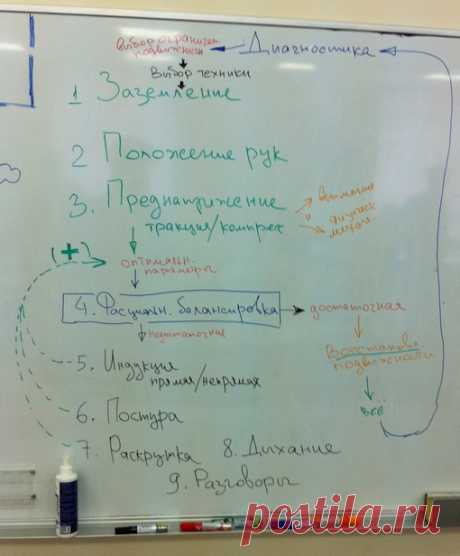 Выбор огранич. подвижности
Диагностика
Выбор техники
1 Заземление
2 Положение рук
3. Преднатяжение
тракция/компрес
(+)
оптимальн.
параметры
4. Фасциальн. балансировка
достаточная
недостаточная
Восстановл
подвижности
5. Индукция
прямая/непрямая
всё
6. Постура
7. Раскрутка
8. Дыхание
9. Разговоры
postila.ru